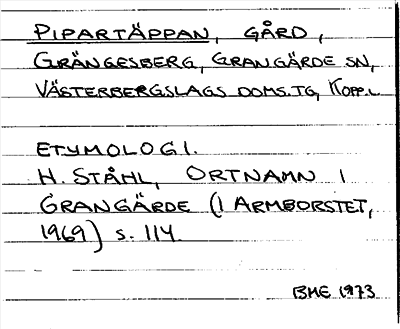 PIPARTÄPPAN, GÅRD,
GRÄNGESBERG, GRANGÄRDE SN,
VÄSTERBERGSLAGS DOMS.TG, KOPP.L.
ETYMOLOGI.
H. STÅHL, ORTNAMN I
GRANGÄRDE (I ARMBORSTET,
1969) s. 114.
BME 1973